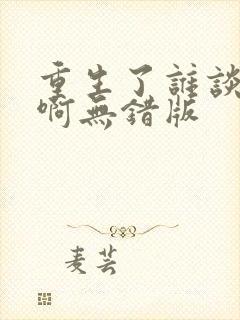 重生了誰談
啊無錯版
麦芸